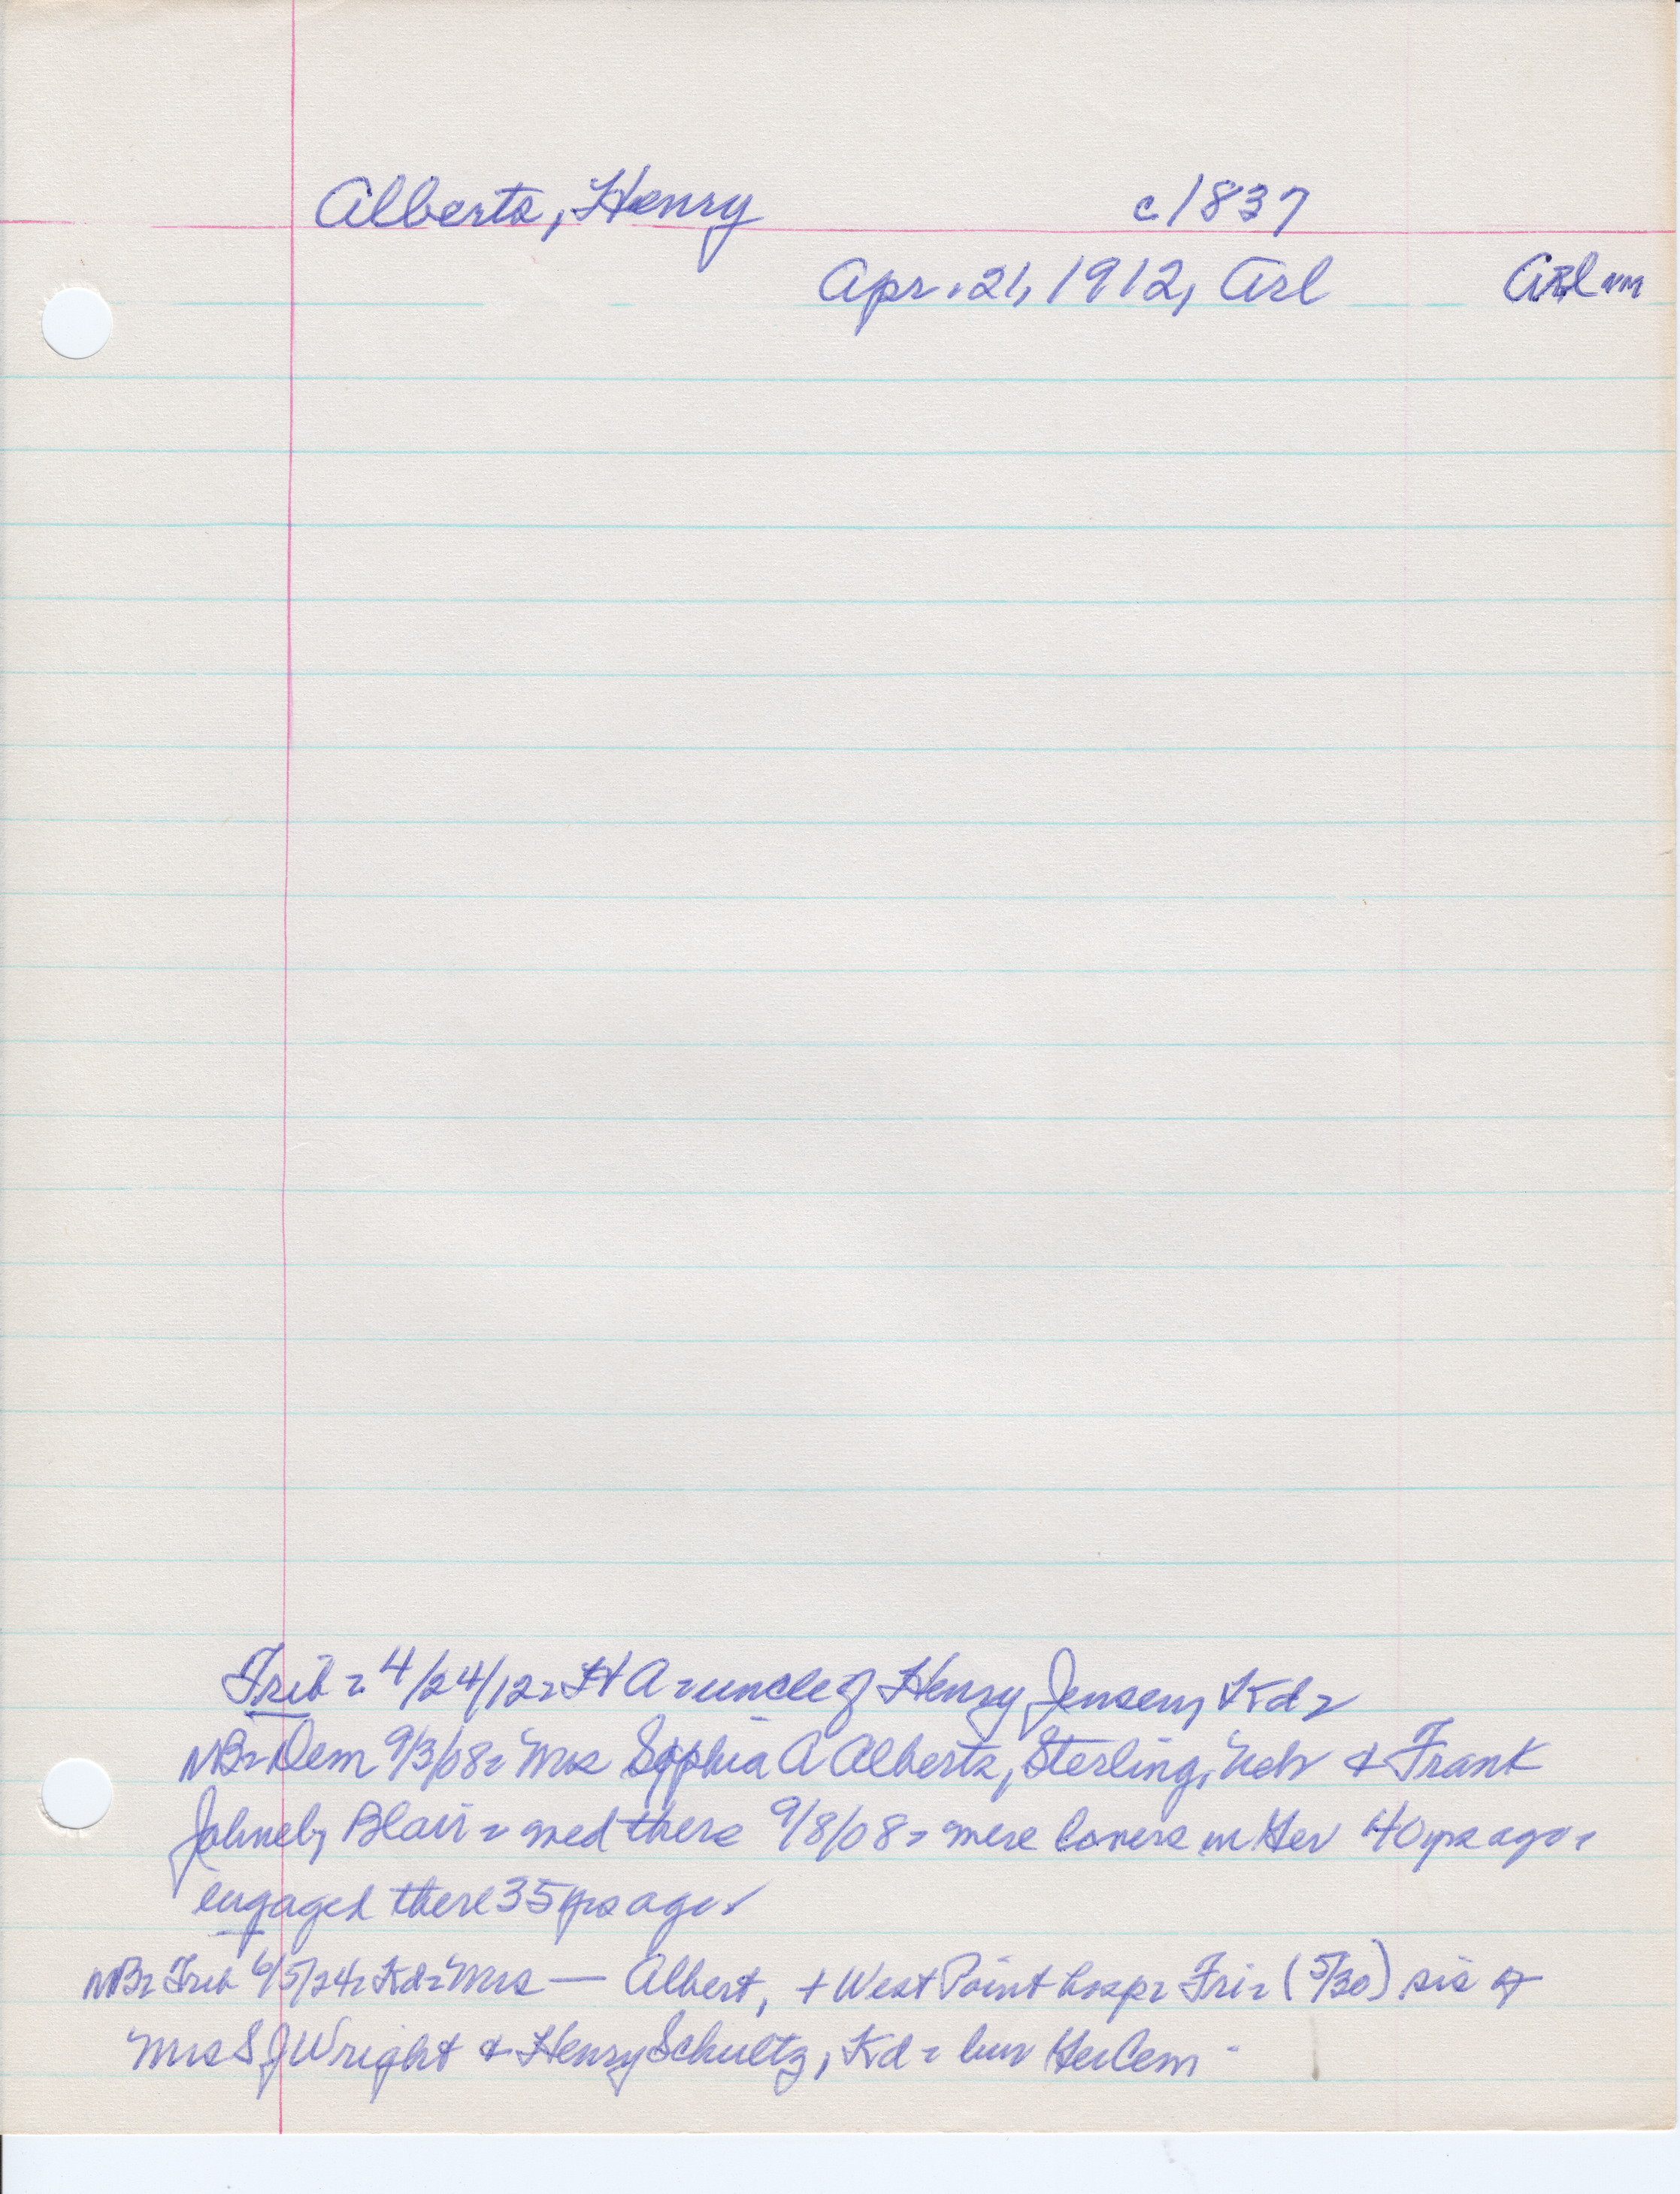 Alberts, Henry c1837
Apr. 21, 1912, Arl Arl nm
Trib = 4/24/12 = H A = uncle of Henry Jensen, Kd =
NB = Dem 9/3/08 = Mrs Sophia A Alberts, Sterling, Neb & Frank
Jahnel, Blair = med there 9/8/08 = were lovers in Ger 40 yrs ago =
engaged there 35 yrs ago.
NB = Trib 6/5/24 = Kd = Mrs — Albert, + West Point hosp = Fri = (5/30) sis of
Mrs S J Wright & Henry Schultz, Kd = bur Ger Cem